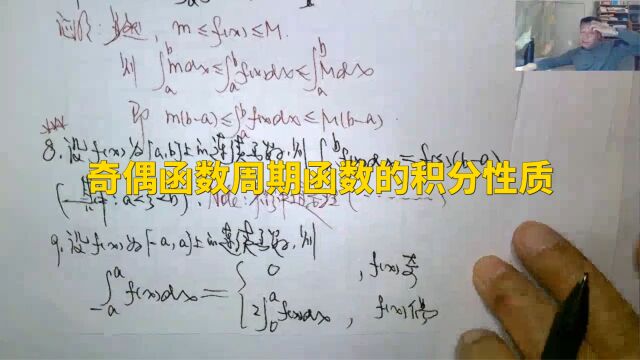 证明: , m≤f(x)≤M.
则 ∫_a^b mdx≤∫_a^b f(x)dx≤∫_a^b Mdx
即 m(b-a)≤∫_a^b f(x)dx≤M(b-a).
8. 设f(x)为[a,b]上的连续函数,则 ∫_a^b f(x)dx=f(ξ)(b-a)
奇偶函数周期函数的积分性质
(其中: a<ξ<b). Note:
9. 设f(x)为[-a,a]上的连续函数,则
∫_{-a}^a f(x)dx={ 0 , f(x)奇
2∫_0^a f(x)dx, f(x)偶